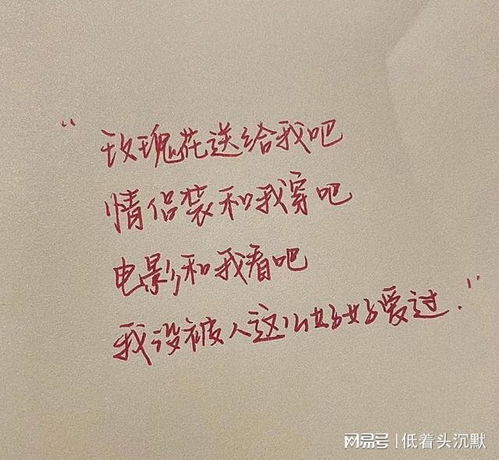 “玫瑰花送给我吧
情侣装和我穿吧
电影和我看吧
我没被人这么好好爱过.”
网易号 | 低着头沉默